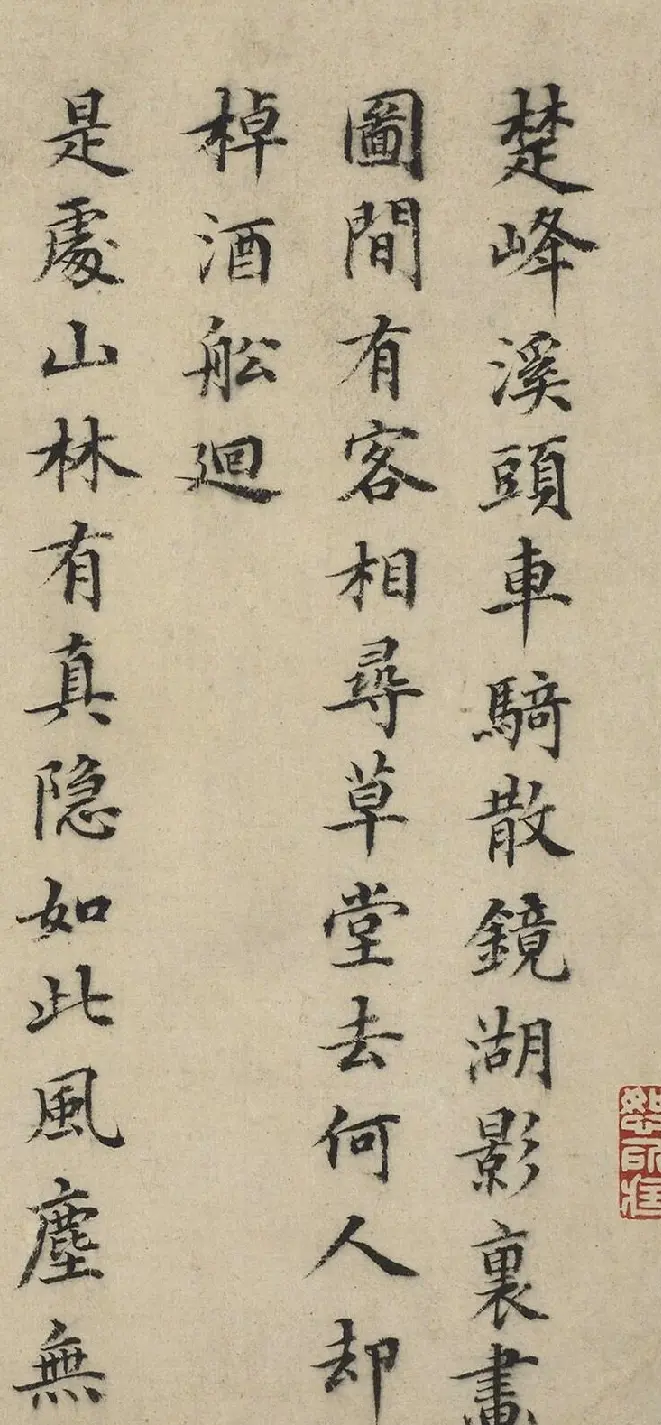 楚峰溪頭車騎散鏡湖影裏畫
圖間有客相尋草堂去何人却
棹酒舩廻
是處山林有真隐如此風塵無